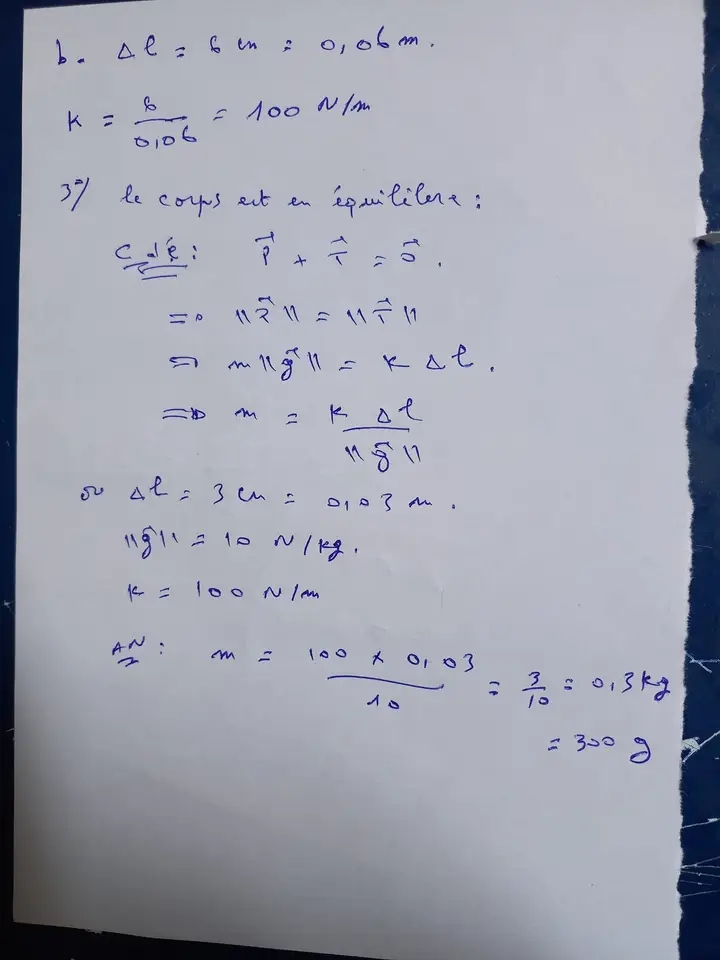 b. Δl = 6 cm = 0,06 m.
K = 6/0,06 = 100 N/m
3°/ le corps est en équilibre :
C d'é : P⃗ + T⃗ = 0⃗.
=> ||P⃗|| = ||T⃗||
=> m||g⃗|| = K Δl.
=> m = K Δl / ||g⃗||
or Δl = 3 cm = 0,03 m.
||g⃗|| = 10 N/kg.
K = 100 N/m
AN : m = 100 x 0,03 / 10 = 3/10 = 0,3 kg
= 300 g